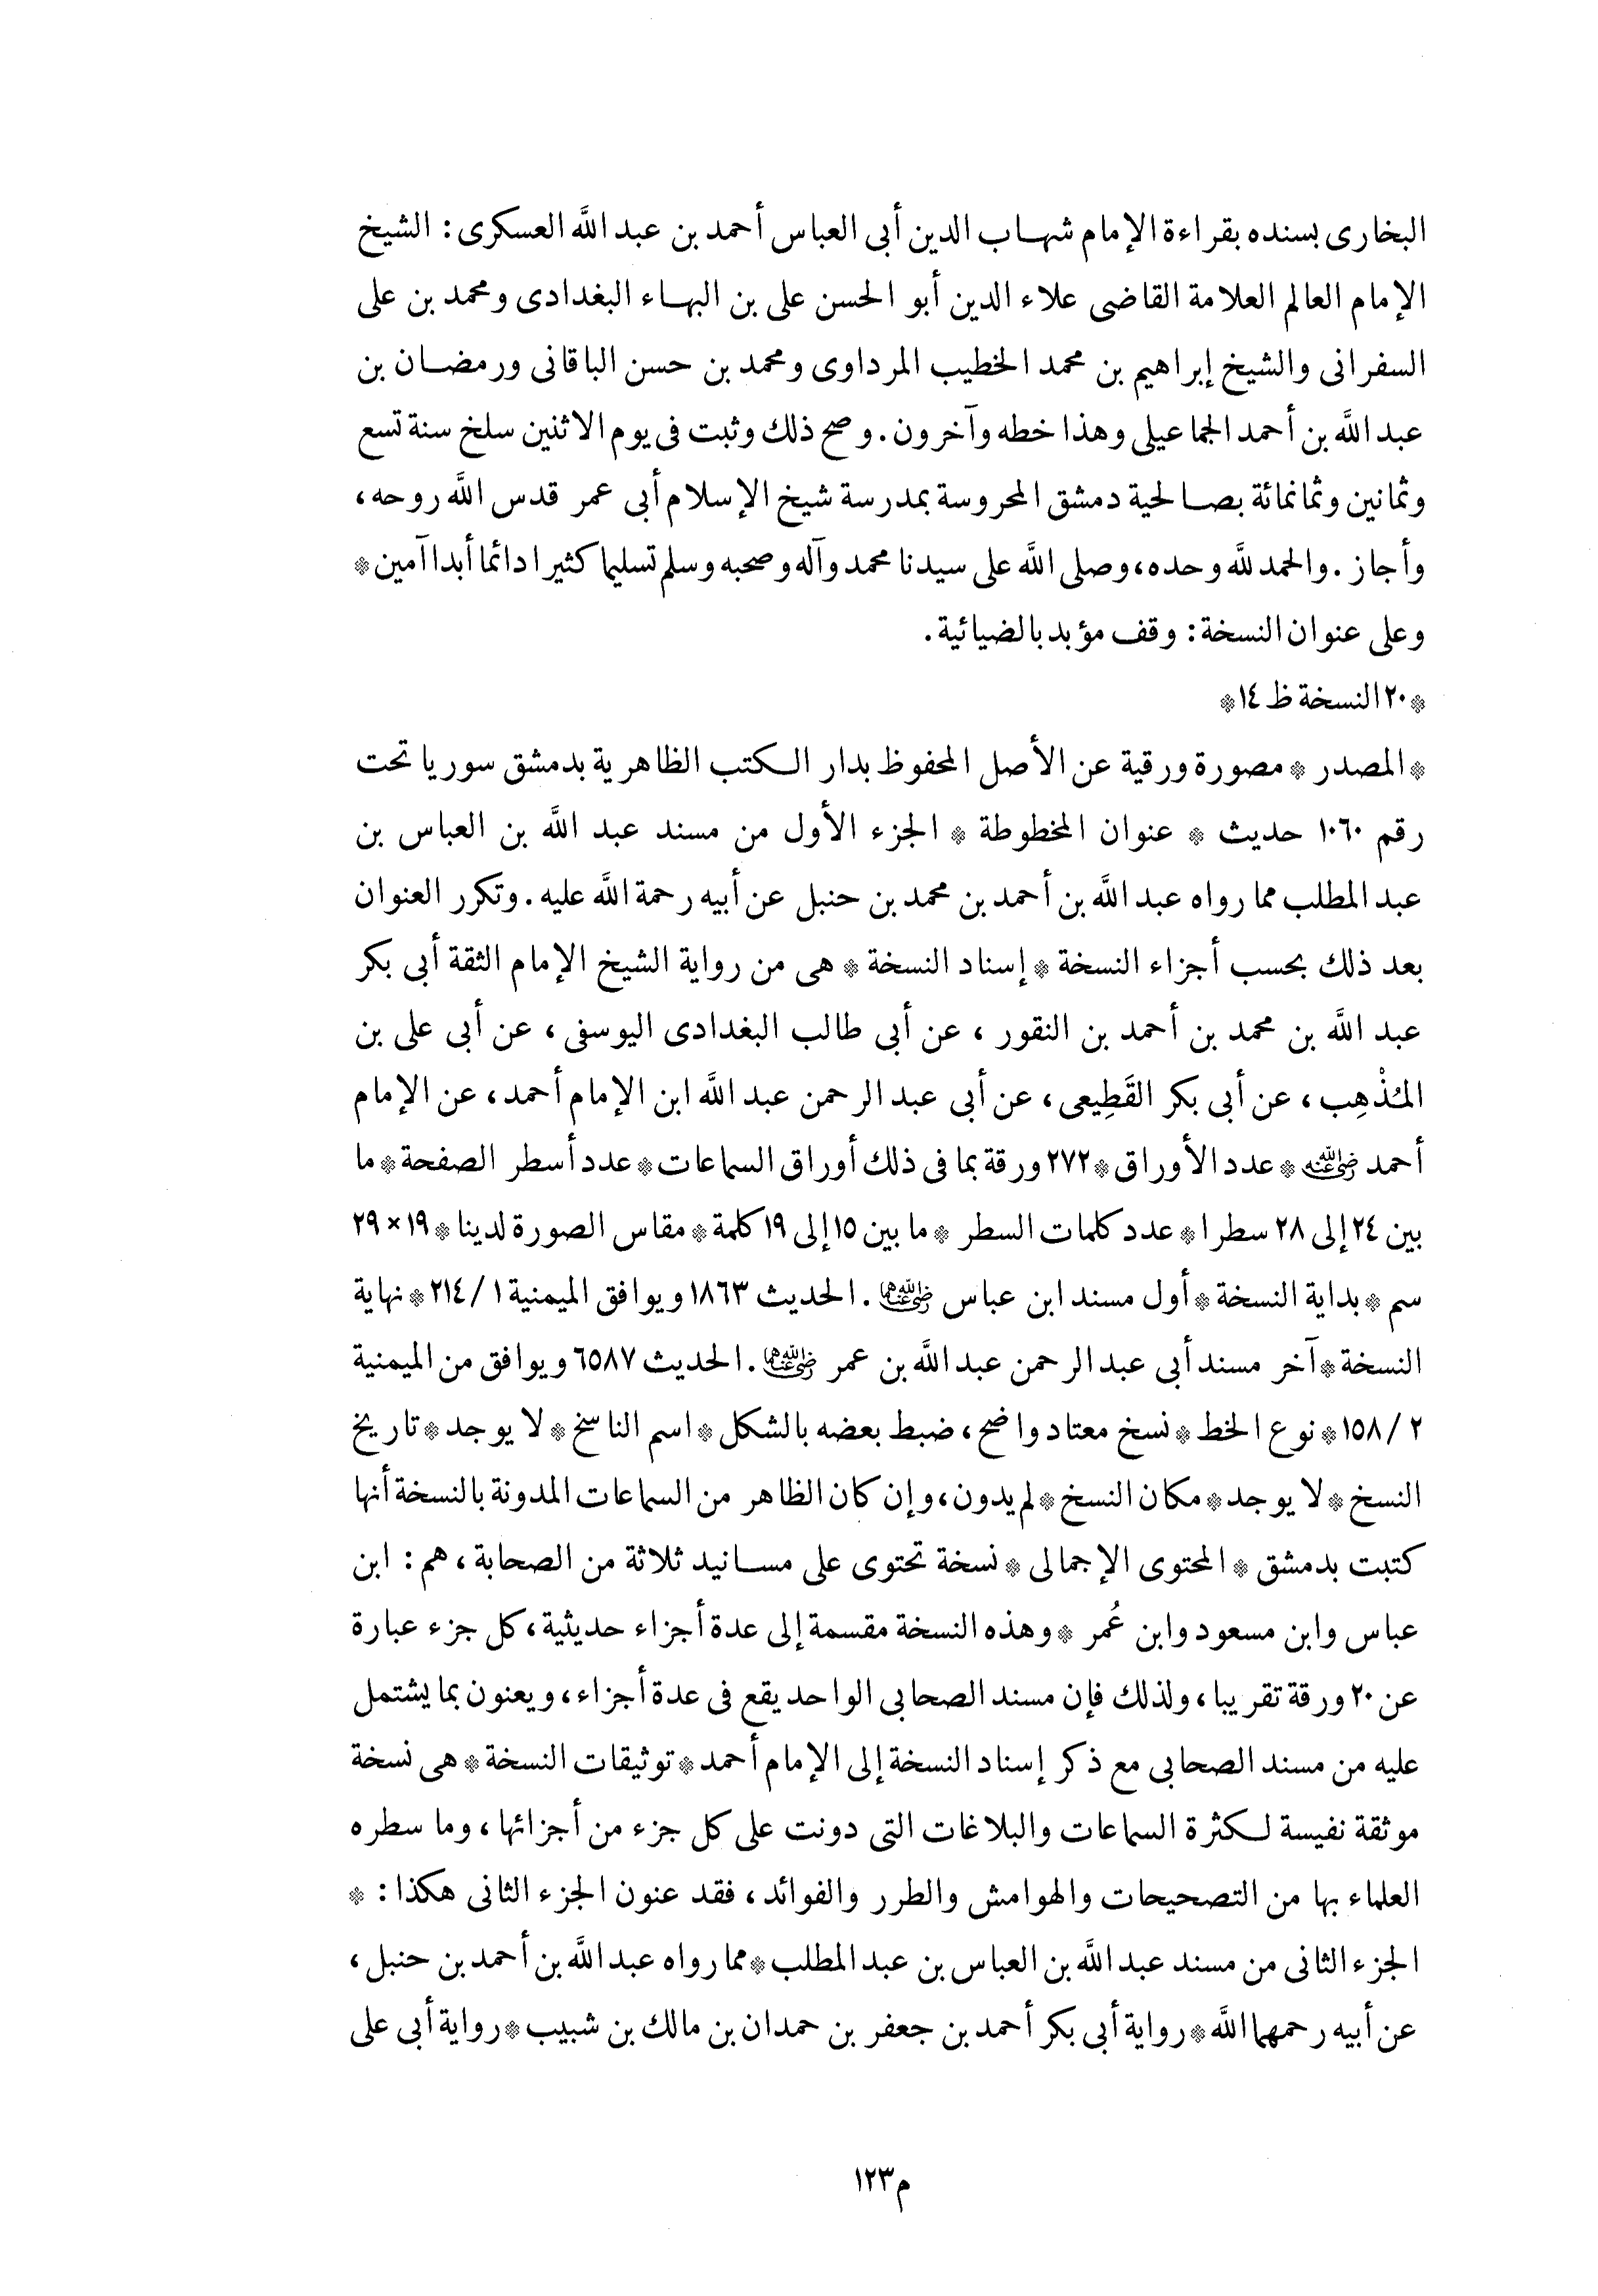 البخارى بسنده بقراءة الإمام شهاب الدين أبى العباس أحمد بن عبد اللَّه العسكرى: الشيخ
الإمام العالم العلامة القاضى علاء الدين أبو الحسن على بن البهاء البغدادى ومحمد بن على
السفرانى والشيخ إبراهيم بن محمد الخطيب المرداوى ومحمد بن حسن الباقانى ورمضان بن
عبد اللَّه بن أحمد الجماعيلى وهذا خطه وآخرون. وصح ذلك وثبت فى يوم الاثنين سلخ سنة تسع
وثمانين وثمانمائة بصالحية دمشق المحروسة بمدرسة شيخ الإسلام أبى عمر قدس اللَّه روحه،
وأجاز. والحمد للَّه وحده، وصلى اللَّه على سيدنا محمد وآله وصحبه وسلم تسليما كثيرا دائما أبدا آمين *
وعلى عنوان النسخة: وقف مؤبد بالضيائية.
* ٢٠ النسخة ظ ١٤ *
* المصدر * مصورة ورقية عن الأصل المحفوظ بدار الكتب الظاهرية بدمشق سوريا تحت
رقم ١٠٦٠ حديث * عنوان المخطوطة * الجزء الأول من مسند عبد اللَّه بن العباس بن
عبد المطلب مما رواه عبد اللَّه بن أحمد بن محمد بن حنبل عن أبيه رحمة اللَّه عليه. وتكرر العنوان
بعد ذلك بحسب أجزاء النسخة * إسناد النسخة * هى من رواية الشيخ الإمام الثقة أبى بكر
عبد اللَّه بن محمد بن أحمد بن النقور، عن أبى طالب البغدادى اليوسفى، عن أبى على بن
المُذْهِب، عن أبى بكر القَطِيعى، عن أبى عبد الرحمن عبد اللَّه ابن الإمام أحمد، عن الإمام
أحمد رضي الله عنه * عدد الأوراق * ٢٧٢ ورقة بما فى ذلك أوراق السماعات * عدد أسطر الصفحة * ما
بين ٢٤ إلى ٢٨ سطرا * عدد كلمات السطر * ما بين ١٥ إلى ١٩ كلمة * مقاس الصورة لدينا * ١٩ × ٢٩
سم * بداية النسخة * أول مسند ابن عباس رضي الله عنهما. الحديث ١٨٦٣ ويوافق الميمنية ١/ ٢١٤ * نهاية
النسخة * آخر مسند أبى عبد الرحمن عبد اللَّه بن عمر رضي الله عنهما. الحديث ٦٥٨٧ ويوافق من الميمنية
٢/ ١٥٨ * نوع الخط * نسخ معتاد واضح، ضبط بعضه بالشكل * اسم الناسخ * لا يوجد * تاريخ
النسخ * لا يوجد * مكان النسخ * لم يدون، وإن كان الظاهر من السماعات المدونة بالنسخة أنها
كتبت بدمشق * المحتوى الإجمالى * نسخة تحتوى على مسانيد ثلاثة من الصحابة، هم: ابن
عباس وابن مسعود وابن عُمر * وهذه النسخة مقسمة إلى عدة أجزاء حديثية، كل جزء عبارة
عن ٢٠ ورقة تقريبا، ولذلك فإن مسند الصحابى الواحد يقع فى عدة أجزاء، ويعنون بما يشتمل
عليه من مسند الصحابى مع ذكر إسناد النسخة إلى الإمام أحمد * توثيقات النسخة * هى نسخة
موثقة نفيسة لكثرة السماعات والبلاغات التى دونت على كل جزء من أجزائها، وما سطره
العلماء بها من التصحيحات والهوامش والطرر والفوائد، فقد عنون الجزء الثانى هكذا: *
الجزء الثانى من مسند عبد اللَّه بن العباس بن عبد المطلب * مما رواه عبد اللَّه بن أحمد بن حنبل،
عن أبيه رحمهما اللَّه * رواية أبى بكر أحمد بن جعفر بن حمدان بن مالك بن شبيب * رواية أبى على
م ١٢٣